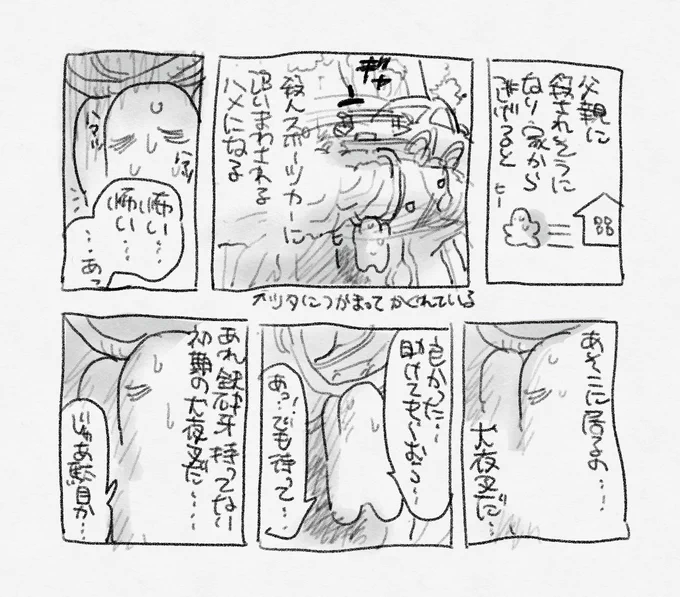 父親に
殺されそうに
なり家から
逃げると
ヒー
ギャ
殺人スポーツカーに
追いまわされる
ハメになる
ヒー
ツタにつかまってかくれている
ハァッ
ハァッ
怖い…
怖い…
…あっ
あそこに居るの…!
犬夜叉だ…
良かった…
助けてもらおう…
あっ…でも待って…
あれ鉄砕牙持ってない
初期の犬夜叉だ…
じゃあ駄目か…